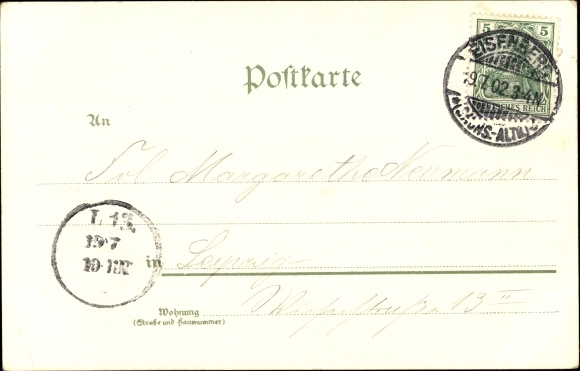 5 5
EISENBERG
19.7.02. 3-4N.
DEUTSCHES REICH
(SACHS.-ALTB.)
Postkarte
An
Frl. Margarethe Neumann
L 13.
19 7
10-11N
in Leipzig
13 II
Wohnung
(Straße und Hausnummer)